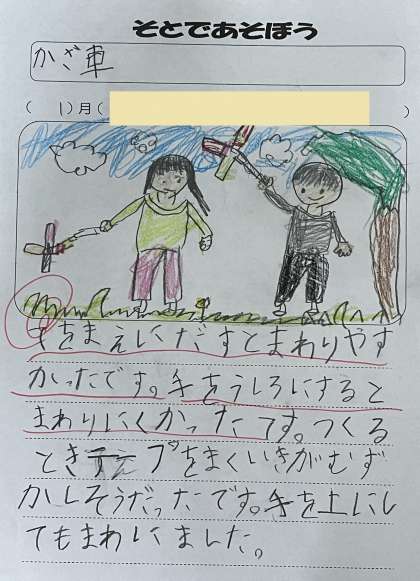 そとであそぼう
かざ車
( 1)月( )
手をまえにだすとまわりやす
かったです。手をうしろにすると
まわりにくかったです。つくる
ときテープをまくいきがむず
かしそうだったです。手を上にし
てもまわりました。